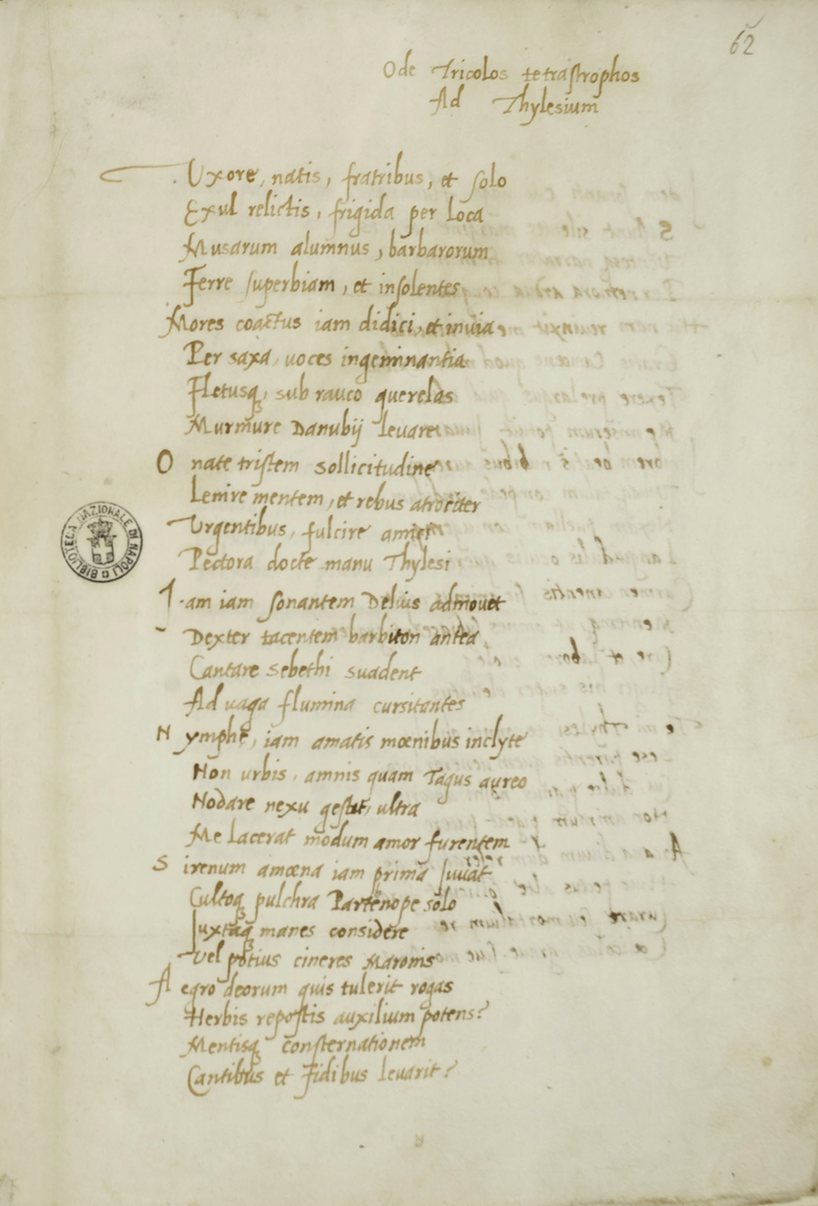 62
Ode Tricolos tetrastrophos
Ad Thylesium
Uxore, natis, fratribus, et solo
Exul relictis, frigida per loca
Musarum alumnus, barbarorum
Ferre superbiam, et insolentes
Mores coactus iam didici, et invia
Per saxa, voces ingeminantia
Fletusq, sub rauco querelas
Murmure Danubij levare
O nate tristem sollicitudine
Lenire mentem, et rebus atrociter
Urgentibus, fulcire amici
Pectora docte manu Thylesi
Iam iam sonantem Delius admovet
Dexter tacentem barbiton antea,
Cantare Sebethi suadent
Ad vaga flumina cursitantes
Nymphę, iam amatis mœnibus inclytę
Non urbis, amnis quam Tagus aureo
Nodare nexu gestit, ultra
Me lacerat modum amor furentem
Sirenum amœna iam primū Iuvat
Cultoq pulchra Partenope solo
Iuxtaq manes considere
Vel potius cineres Maronis
Aegro deorum quis tulerit rogas
Herbis repostis auxilium potens?
Mentisq consternationem
Cantibus et Fidibus levarit?
BIBLIOTECA NAZIONALE DI NAPOLI